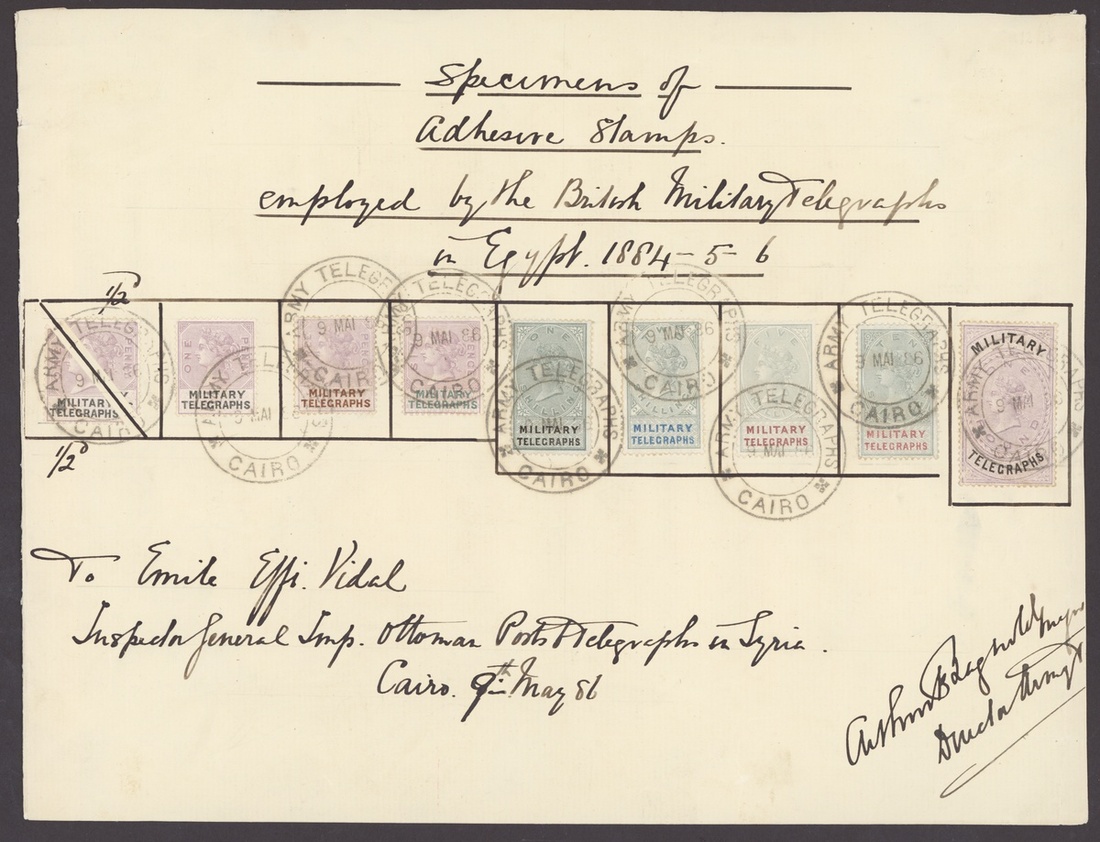 Specimens of
Adhesive Stamps.
employed by the British Military Telegraphs
in Egypt. 1884-5-6
1/2d
ARMY TELEGRAPHS
9 MAI 86
CAIRO
MILITARY
TELEGRAPHS
1/2d
ONE PENNY
MILITARY
TELEGRAPHS
ARMY TELEGRAPHS
9 MAI 86
CAIRO
PENCE
MILITARY
TELEGRAPHS
ARMY TELEGRAPHS
9 MAI 86
CAIRO
PENCE
MILITARY
TELEGRAPHS
ARMY TELEGRAPHS
9 MAI 86
CAIRO
ONE
SHILLING
MILITARY
TELEGRAPHS
ARMY TELEGRAPHS
CAIRO
SHILLINGS
MILITARY
TELEGRAPHS
ARMY TELEGRAPHS
9 MAI 86
CAIRO
MILITARY
TELEGRAPHS
ARMY TELEGRAPHS
9 MAI
CAIRO
TEN
SHILLINGS
MILITARY
TELEGRAPHS
ARMY TELEGRAPHS
9 MAI 86
CAIRO
MILITARY
ONE
POUND
TELEGRAPHS
9 MAI
To Emile Effi. Vidal
Inspector General Imp. Ottoman Posts & Telegraphs in Syria.
Cairo. 9th May 86
Arthur Bagnold Major
Director Army T